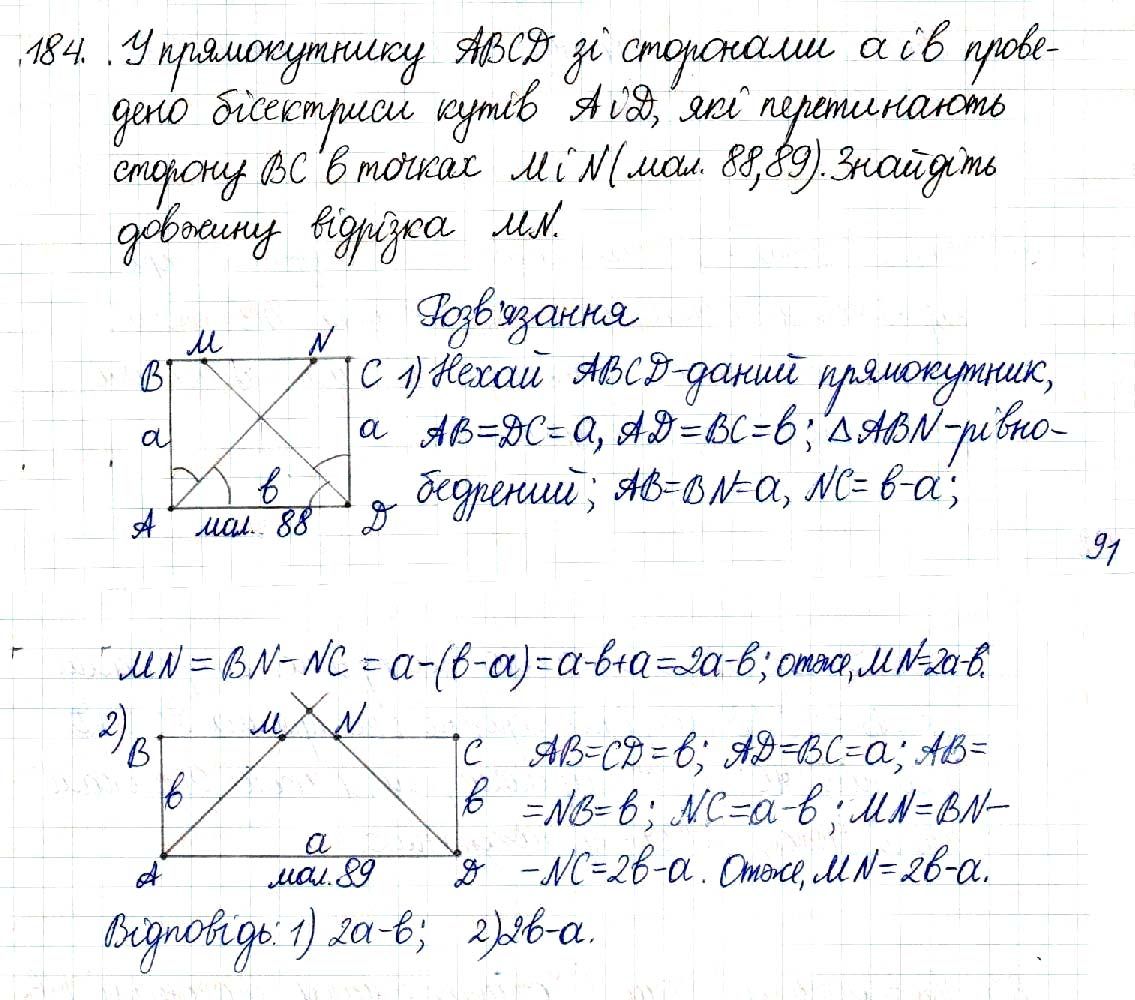 184. У прямокутнику ABCD зі сторонами a і в прове-
дено бісектриси кутів A і D, які перетинають
сторону BC в точках M і N (мал. 88,89). Знайдіть
довжину відрізка MN.
Розв'язання
B M N C
a a
в
A D
мал. 88
1) Нехай ABCD-даний прямокутник,
AB=DC=a, AD=BC=в; △ABN-рівно-
бедрений; AB=BN=a, NC=в-a;
91
MN=BN-NC=a-(в-a)=a-в+a=2a-в; отже, MN=2a-в.
2)
B M N C
в в
a
A D
мал. 89
AB=CD=в; AD=BC=a; AB=
=NB=в; NC=a-в; MN=BN-
-NC=2в-a. Отже, MN=2в-a.
Відповідь: 1) 2a-в; 2) 2в-a.